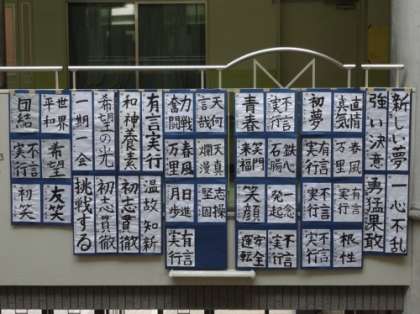 新しい夢
一心不乱
強い決意
勇猛果敢
春風万里
有言実行
根性
初夢
有言実行
不言実行
不言実行
不言実行
一念発起
不言実行
青春
笑門来福
笑顔
安全運転
天何言哉
天真爛漫
志操堅固
力戦奮闘
春風万里
日進月歩
有言実行
有言実行
温故知新
和神養素
初志貫徹
希望の光
初志貫徹
一期一会
挑戦する
世界平和
希望
友笑
団結
不言実行
初笑